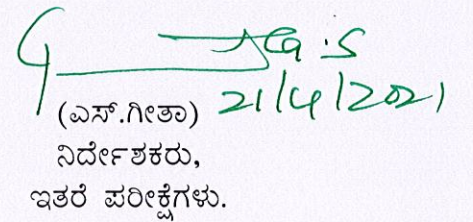 21/4/2021
(ಎಸ್.ಗೀತಾ)
ನಿರ್ದೇಶಕರು,
ಇತರೆ ಪರೀಕ್ಷೆಗಳು.